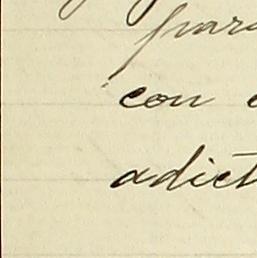 par
con
adict